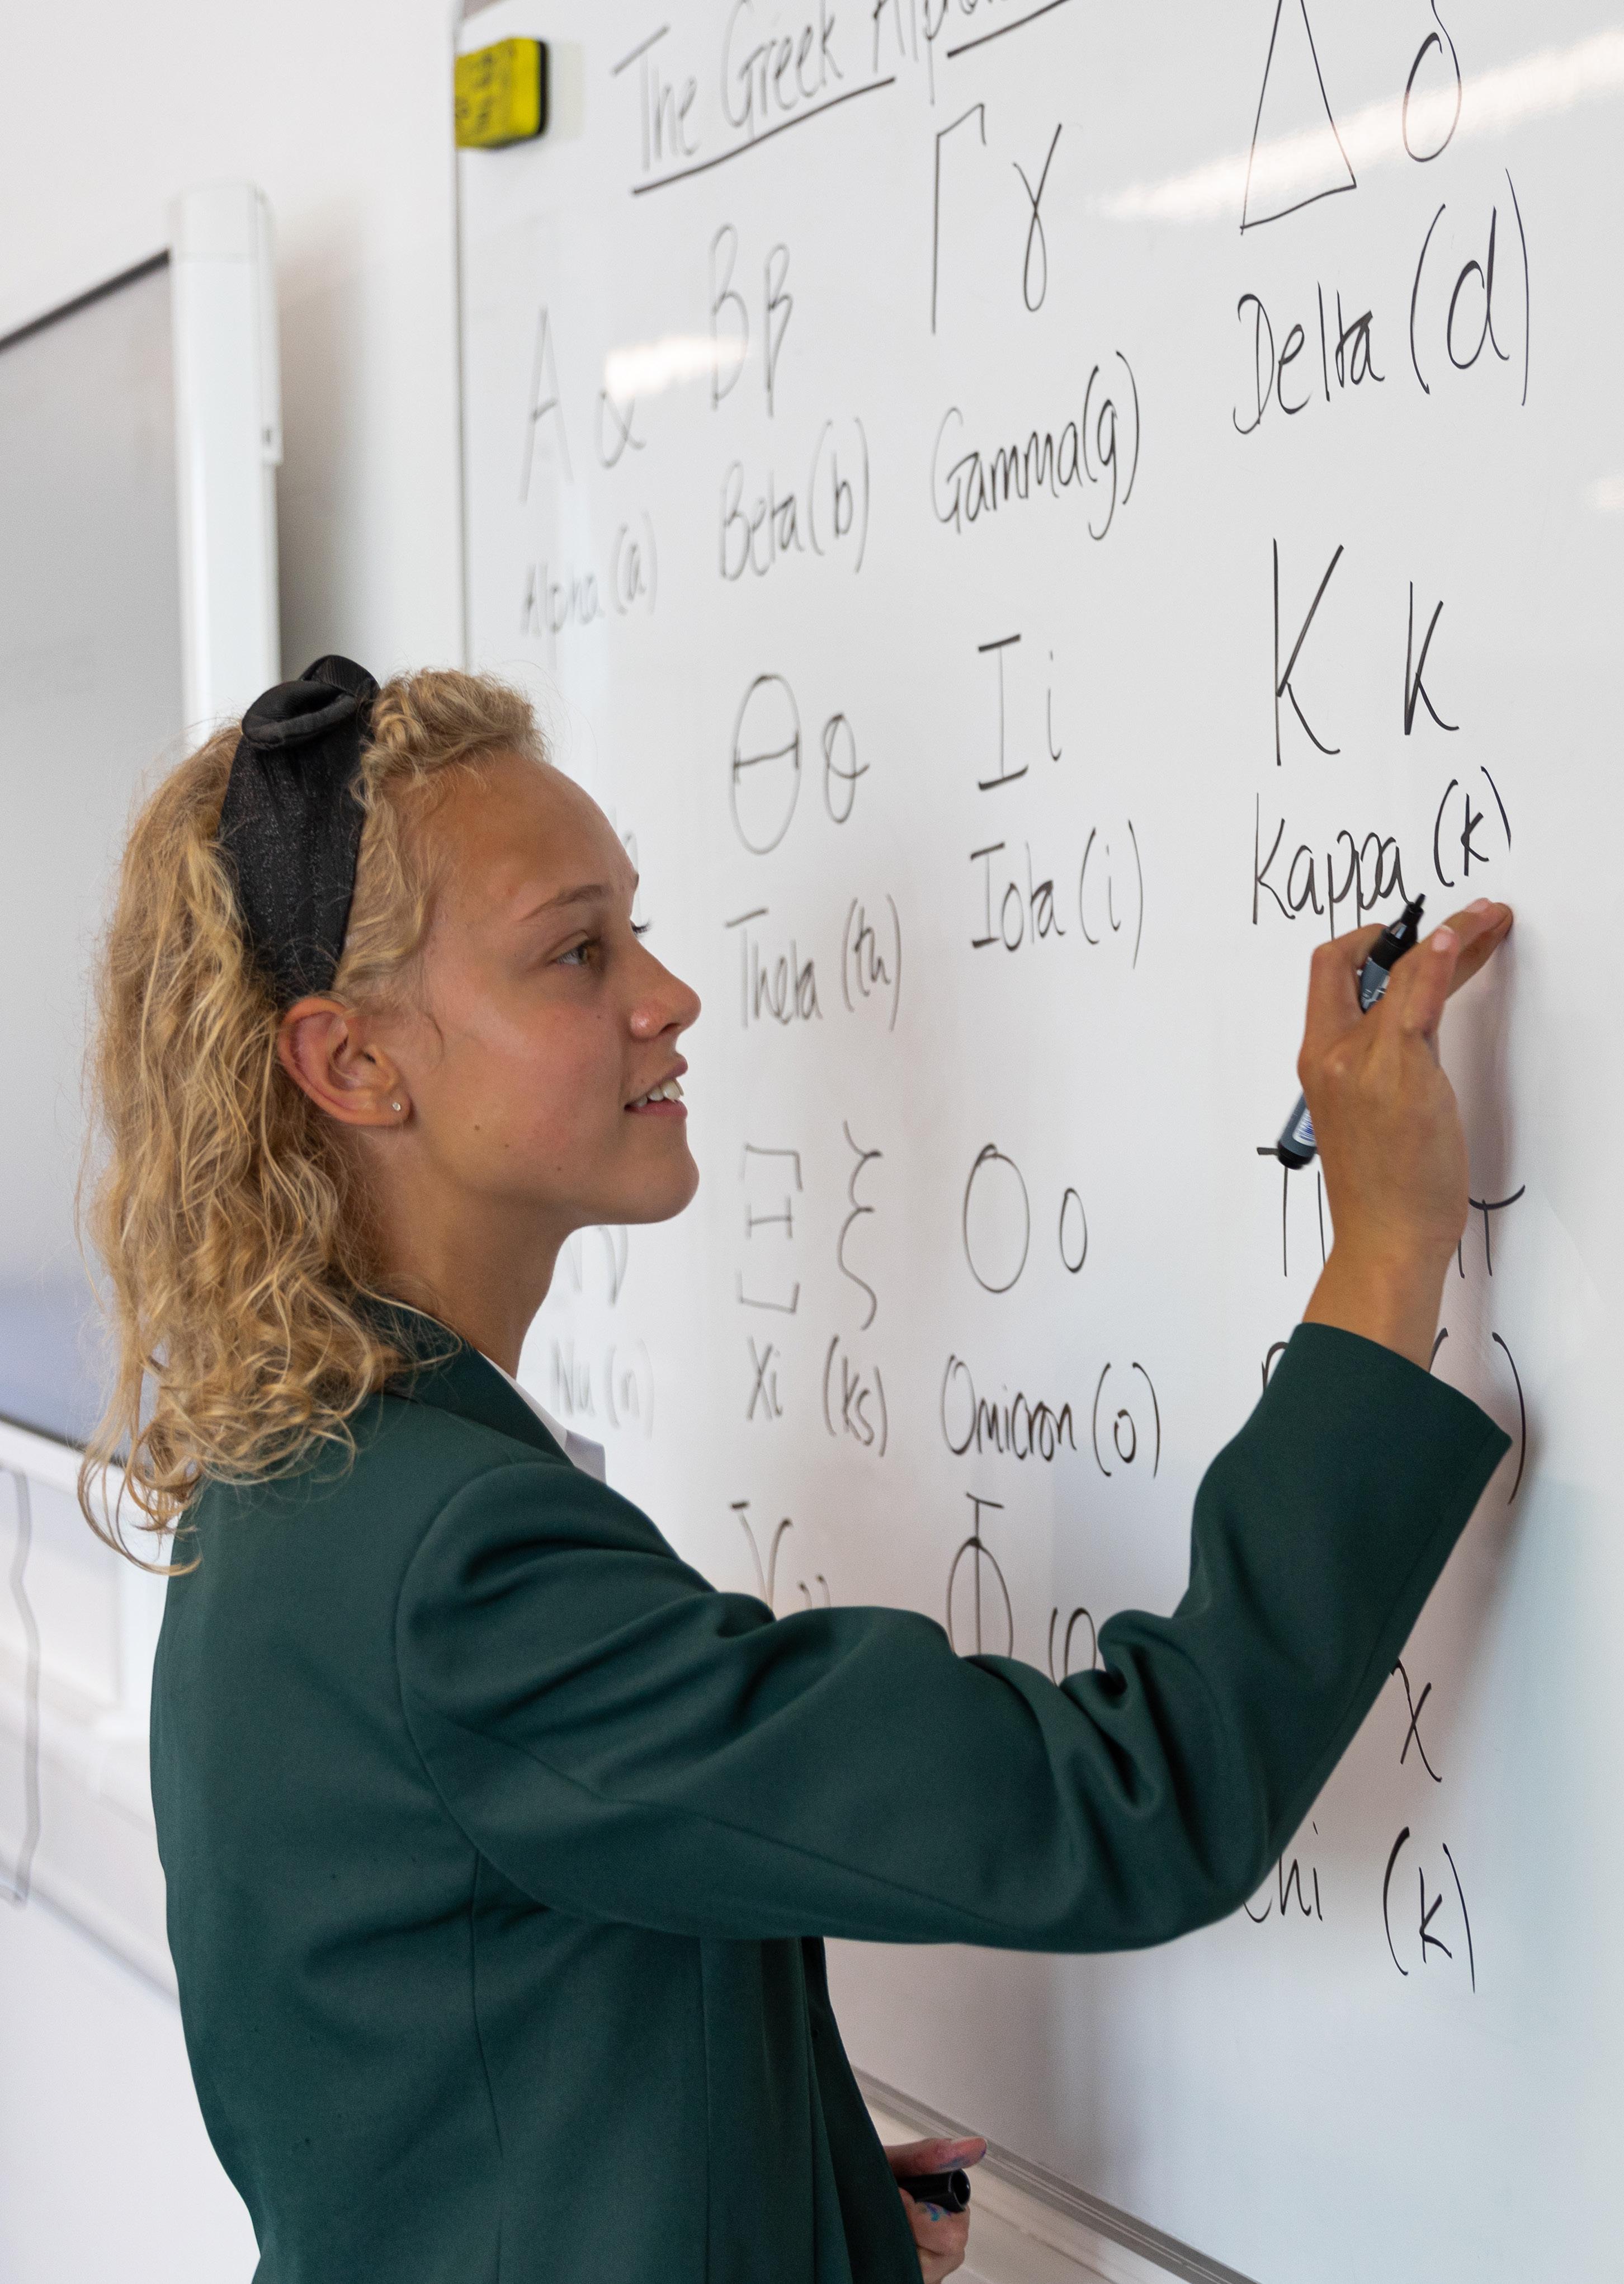 The Greek
Α α Β β Γ γ Δ δ
Alpha (a) Beta (b) Gamma (g) Delta (d)
Θ θ I i K k
Theta (th) Iota (i) Kappa (k)
Ξ ξ O o
Nu (n) Xi (ks) Omicron (o)
Φ φ χ
(k)